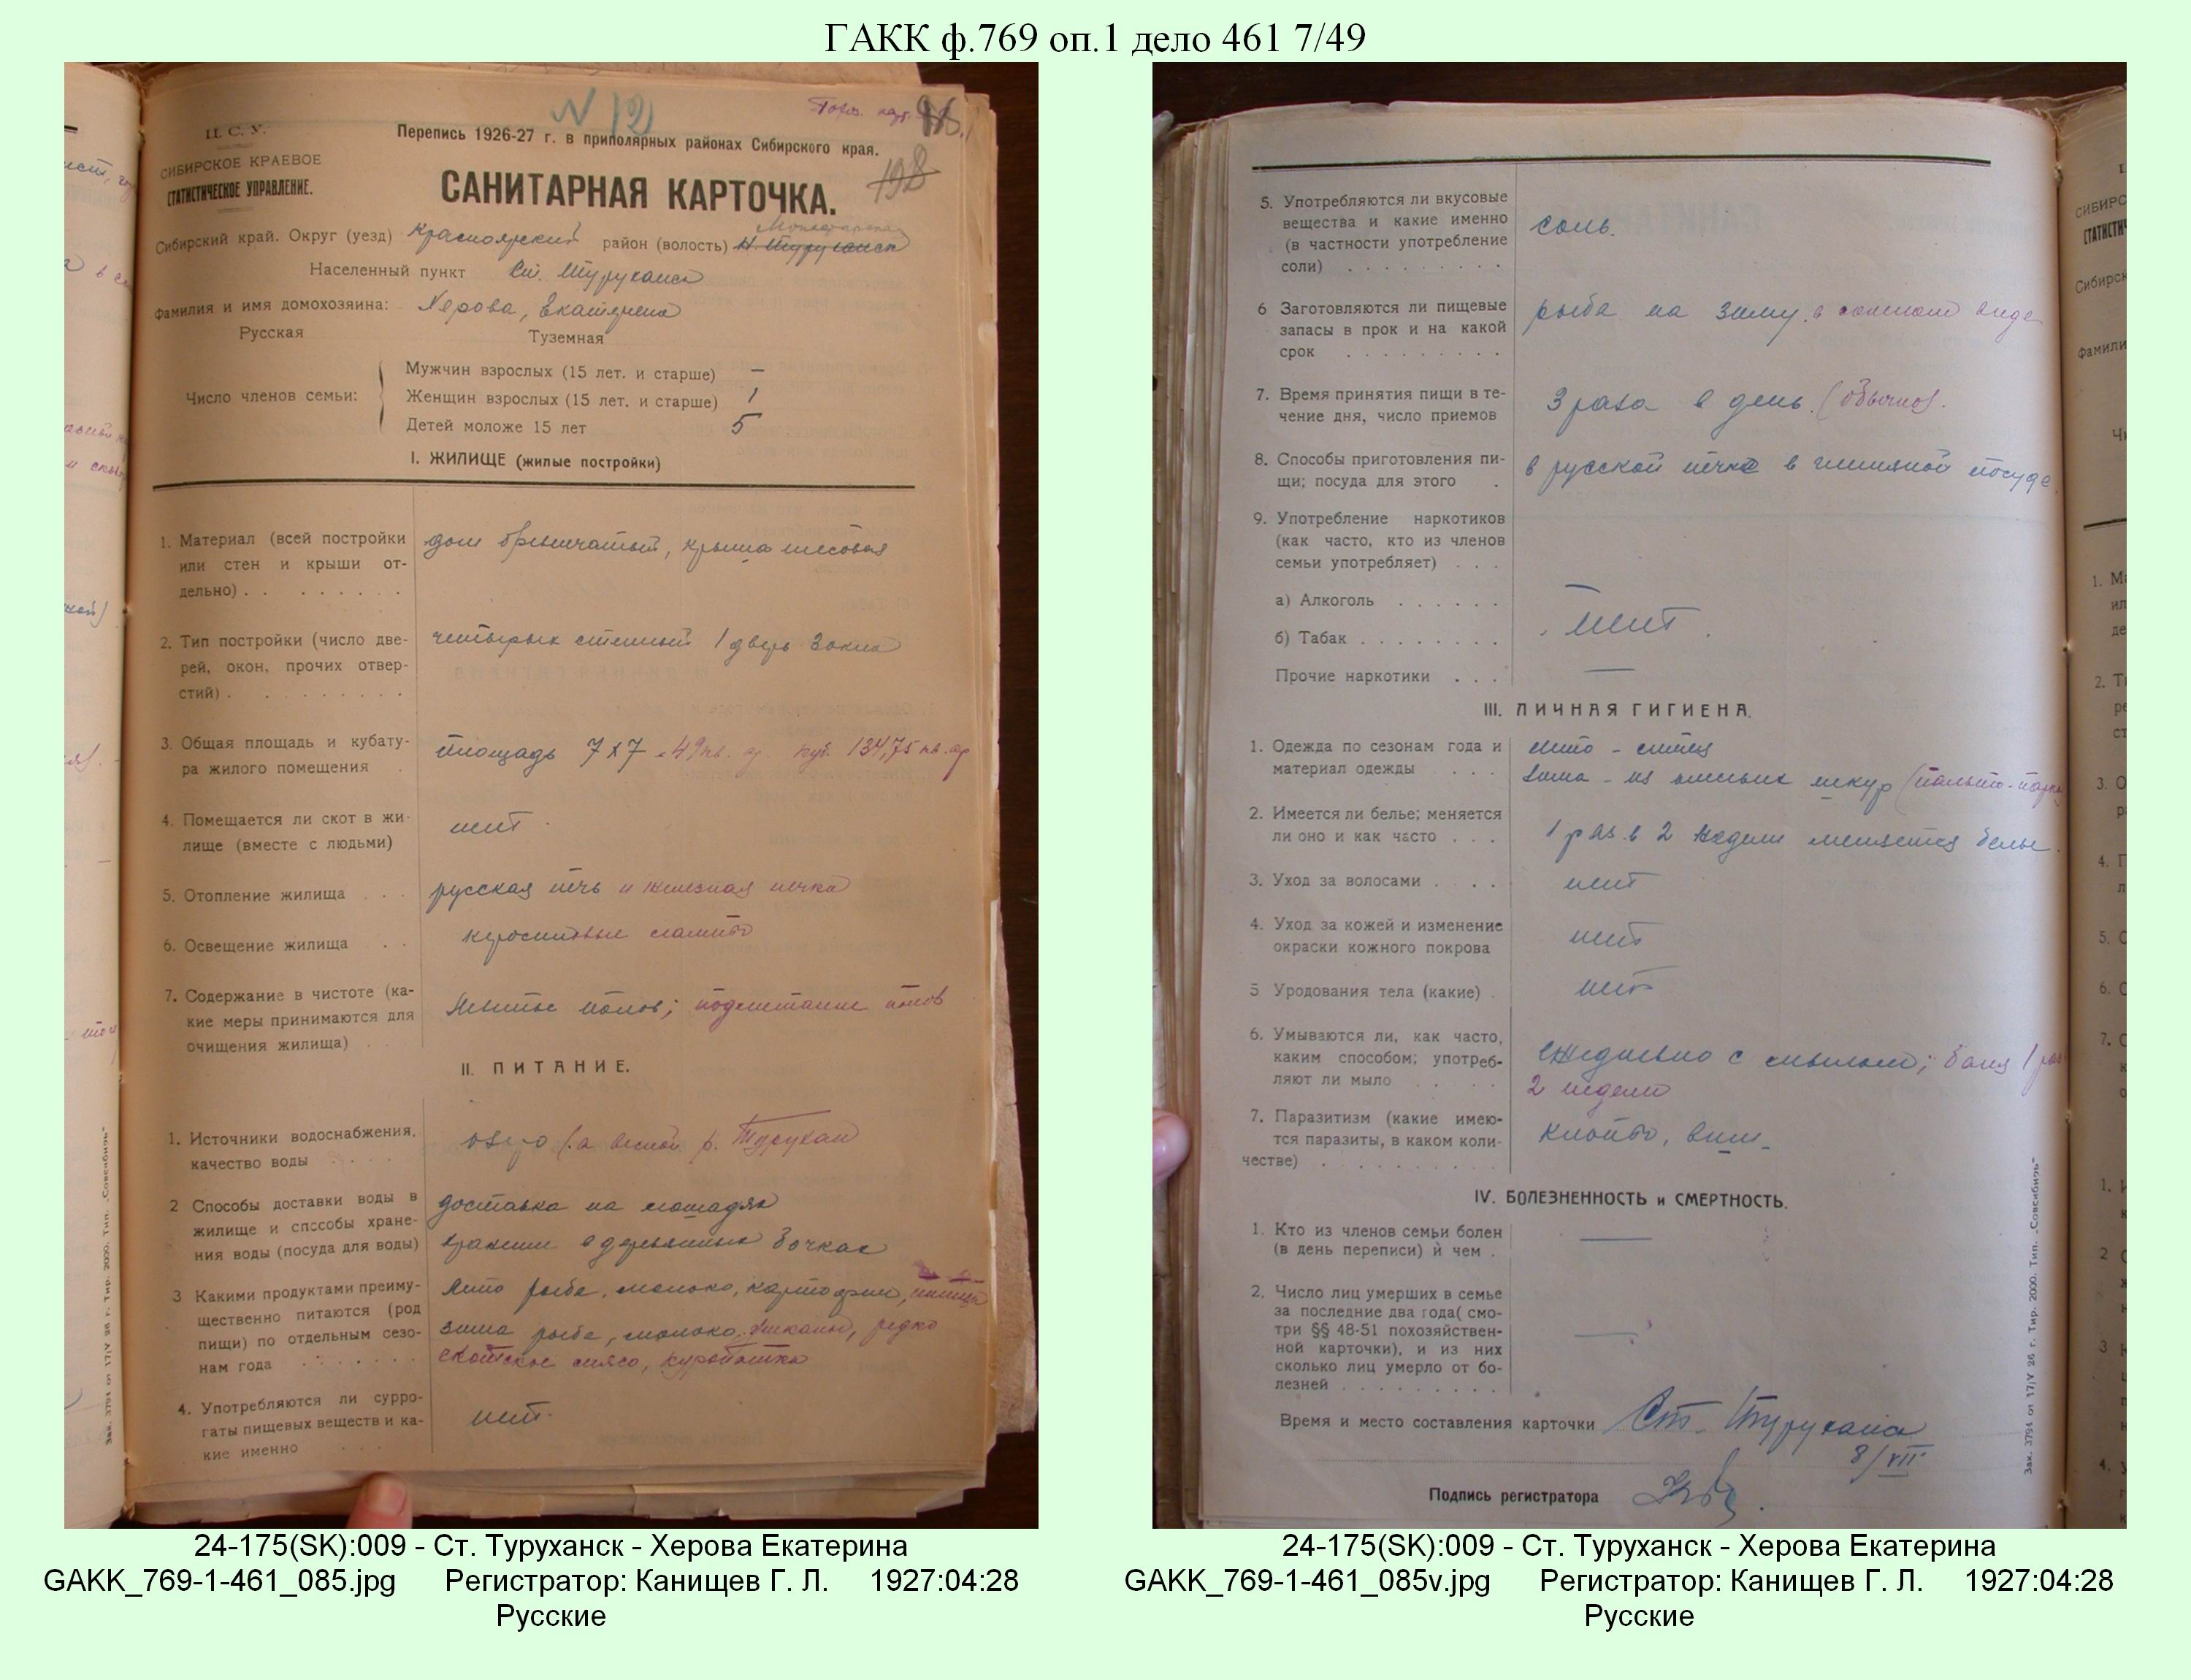 ГАКК ф.769 оп.1 дело 461 7/49
N 12
Ц. С. У.
СИБИРСКОЕ КРАЕВОЕ
СТАТИСТИЧЕСКОЕ УПРАВЛЕНИЕ.
Перепись 1926-27 г. в приполярных районах Сибирского края.
САНИТАРНАЯ КАРТОЧКА.
198
Сибирский край. Округ (уезд) Красноярский район (волость) Н. Туруханск
Населенный пункт Ст. Туруханск
Фамилия и имя домохозяина: Херова, Екатерина
Русская Туземная
Число членов семьи:
Мужчин взрослых (15 лет. и старше) –
Женщин взрослых (15 лет. и старше) 1
Детей моложе 15 лет 5
I. ЖИЛИЩЕ (жилые постройки)
1. Материал (всей постройки
или стен и крыши от-
дельно) . . . . . . . .
дом бревенчатый, крыша тесовая
2. Тип постройки (число две-
рей, окон, прочих отвер-
стий) . . . . . . . . .
четырых стенный 1 дверь 3 окна
3. Общая площадь и кубату-
ра жилого помещения .
площадь 7 x 7 = 49 кв. ар. куб. 134,75 кв. ар
4. Помещается ли скот в жи-
лище (вместе с людьми)
нет
5. Отопление жилища . . .
русская печь и железная печка
6. Освещение жилища . .
керосиновые лампы
7. Содержание в чистоте (ка-
кие меры принимаются для
очищения жилища) . .
Мытье полов; подметание полов
II. ПИТАНИЕ.
1. Источники водоснабжения,
качество воды . . . .
озеро (а весной р. Турухан
2 Способы доставки воды в
жилище и способы хране-
ния воды (посуда для воды)
доставка на лошадях
хранение в деревянных бочках
3 Какими продуктами преиму-
щественно питаются (род
пищи) по отдельным сезо-
нам года . . . . . . .
Лето рыба, молоко, картофель, птица
зима рыба, молоко, ушканы, редко
скотское мясо, куропатка
4. Употребляются ли сурро-
гаты пищевых веществ и ка-
кие именно . . .
нет.
Зак. 3794 от 17/V 26 г. Тир. 2000. Тип. „Совсибирь“
5. Употребляются ли вкусовые
вещества и какие именно
(в частности употребление
соли) . . . . . . . . .
соль.
6 Заготовляются ли пищевые
запасы в прок и на какой
срок . . . . . . . . .
рыба на зиму в соленом виде
7. Время принятия пищи в те-
чение дня, число приемов
3 раза в день. (обычно).
8. Способы приготовления пи-
щи; посуда для этого .
в русской печке в глиняной посуде
9. Употребление наркотиков
(как часто, кто из членов
семьи употребляет) . . .
а) Алкоголь . . . . . .
б) Табак . . . . . . . .
нет.
Прочие наркотики . . . —
III. ЛИЧНАЯ ГИГИЕНА.
1. Одежда по сезонам года и
материал одежды . . .
лето - ситец
зима - из оленьих шкур (пальто-парка
2. Имеется ли белье; меняется
ли оно и как часто . . .
1 раз в 2 недели меняется белье.
3. Уход за волосами . . . .
нет
4. Уход за кожей и изменение
окраски кожного покрова
нет
5 Уродования тела (какие) .
нет
6. Умываются ли, как часто,
каким способом; употреб-
ляют ли мыло . . . .
ежедневно с мылом; баня 1 раз
2 недели
7. Паразитизм (какие имею-
тся паразиты, в каком коли-
честве) . . . . . . . . .
клопы, вши
IV. БОЛЕЗНЕННОСТЬ и СМЕРТНОСТЬ.
1. Кто из членов семьи болен
(в день переписи) и чем .
—
2. Число лиц умерших в семье
за последние два года( смо-
три §§ 48-51 похозяйствен-
ной карточки), и из них
сколько лиц умерло от бо-
лезней . . . . . . . . .
—
Время и место составления карточки Ст. Туруханск
8/VII
Подпись регистратора
Зак. 3794 от 17/V 26 г. Тир. 2000. Тип. „Совсибирь“
24-175(SK):009 - Ст. Туруханск - Херова Екатерина
GAKK_769-1-461_085.jpg Регистратор: Канищев Г. Л. 1927:04:28
Русские
24-175(SK):009 - Ст. Туруханск - Херова Екатерина
GAKK_769-1-461_085v.jpg Регистратор: Канищев Г. Л. 1927:04:28
Русские